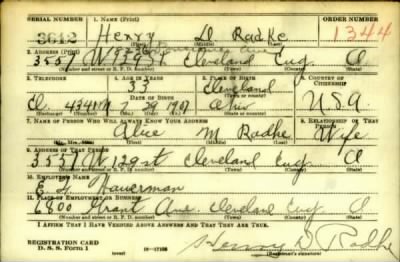 SERIAL NUMBER 1. NAME (Print) ORDER NUMBER
3612 Henry D Radke 1344
(First) (Middle) (Last)
2. ADDRESS (Print)
3557 W 129 St. Cleveland Cuy. O
(Number and street or R. F. D. number) (Town) (County) (State)
3. TELEPHONE 4. AGE IN YEARS 5. PLACE OF BIRTH 6. COUNTRY OF CITIZENSHIP
33 Cleveland
DATE OF BIRTH (Town or county)
7 29 1907 Ohio USA
(Exchange) (No.) (Mo.) (Day) (Yr.) (State or country)
7. NAME OF PERSON WHO WILL ALWAYS KNOW YOUR ADDRESS 8. RELATIONSHIP OF THAT PERSON
Alice M Radke Wife
(Mr., Mrs., Miss) (First) (Middle) (Last)
9. ADDRESS OF THAT PERSON
3557 W 129 st Cleveland Cuy O
(Number and street or R. F. D. number) (Town) (County) (State)
10. EMPLOYER'S NAME
E. Hauserman
11. PLACE OF EMPLOYMENT OR BUSINESS
6800 Grant Ave. Cleveland Cuy O
(Number and street or R. F. D. number) (Town) (County) (State)
I AFFIRM THAT I HAVE VERIFIED ABOVE ANSWERS AND THAT THEY ARE TRUE.
REGISTRATION CARD
D. S. S. Form 1 (over) 16—17105 Henry D. Radke
(Registrant's signature)